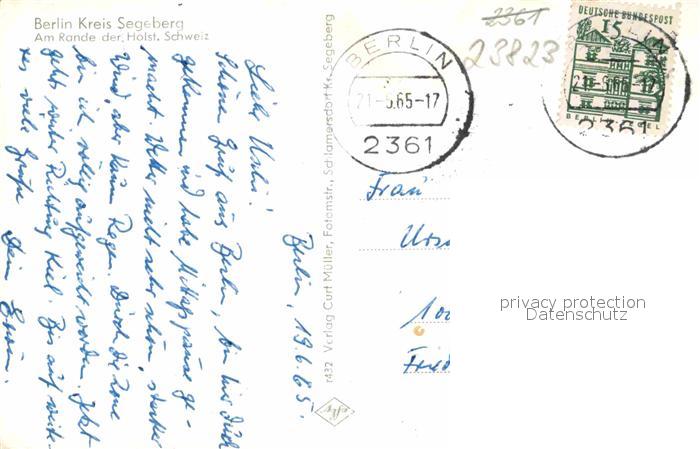 Berlin Kreis Segeberg
Am Rande der Holst. Schweiz
Berlin, 19.6.65.
Liebe Ursli!
Schöne Grüße aus Berlin, bin hier durch
gekommen und habe Mittagspause ge-
macht. Wetter nicht sehr schön, starker
Wind, aber kaum Regen. Durch die Zone
bin ich völlig aufgeweicht worden. Jetzt
geht weiter Richtung Kiel. Bis auf weite-
res viele Grüße Dein Erwin.
r432 Verlag Curt Müller, Fotomstr., Schlamersdorf Kr. Segeberg
2361
23823
BERLIN
21-6.65-17
2361
DEUTSCHE BUNDESPOST
15
BERLIN
2361
Frau
Urs
100
Fried
privacy protection
Datenschutz